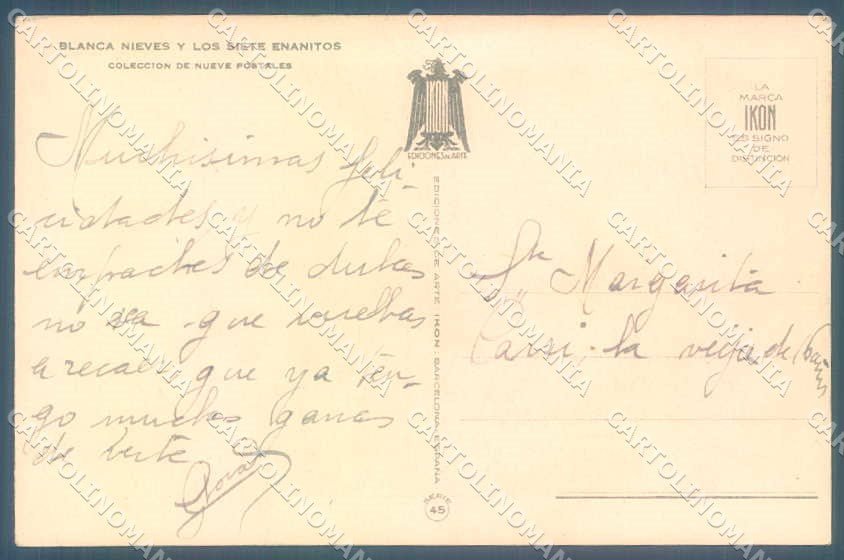 BLANCA NIEVES Y LOS SIETE ENANITOS
COLECCION DE NUEVE POSTALES
EDICIONES DE ARTE
LA
MARCA
IKON
ES SIGNO
DE
DISTINCIÓN
Muchisimas feli-
cidades y no te
empaches de dulces
no sea que vuelvas
a recaer que ya ten-
go muchas ganas
de verte
EDICIONES DE ARTE IKON BARCELONA-ESPAÑA
SERIE
45
Margarita
la vieja de
CARTOLINOMANIA